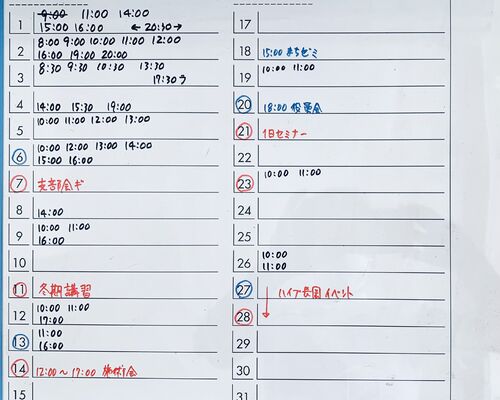 1 9:00 11:00 14:00
15:00 16:00 ←20:30→
2 8:00 9:00 10:00 11:00 12:00
16:00 19:00 20:00
3 8:30 9:30 10:30 13:30
17:30
4 14:00 15:30 19:00
5 10:00 11:00 12:00 13:00
6 10:00 12:00 13:00 14:00
15:00 16:00
7 支部会ギ
8 14:00
9 10:00 11:00
16:00
10
11 冬期講習
12 10:00 11:00
17:00
13 11:00
16:00
14 12:00〜17:00
15
17
18 15:00 まちゼミ
19 10:00 11:00
20 18:00 役員会
21 1日セミナー
22
23 10:00 11:00
25
26 10:00
11:00
27 イベント
28
29
30
31